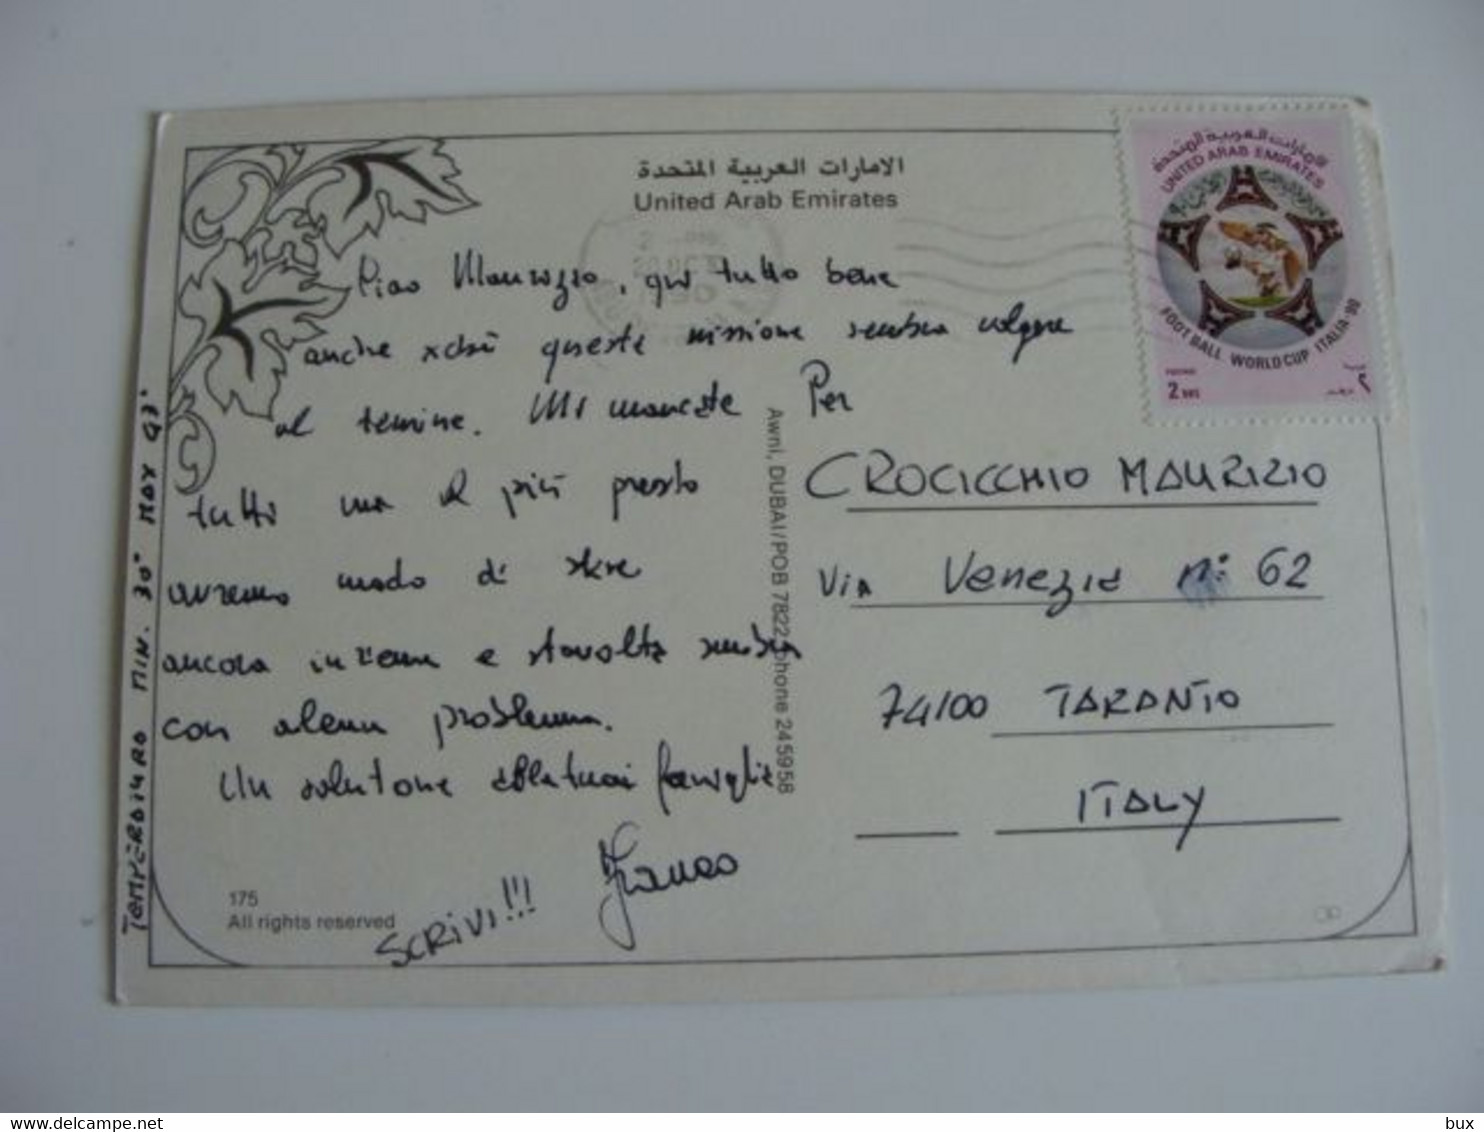 الامارات العربية المتحدة
United Arab Emirates
الامارات العربية المتحدة
UNITED ARAB EMIRATES
FOOTBALL WORLD CUP ITALIA-90
POSTAGE
2 DHS
٢
Ciao Maurizio, qui tutto bene
anche xchè questa missione sembra volgere
al termine. Mi mancate
tutti ma al più presto
avremo modo di stare
ancora insieme e stavolta senza
con alcun problema.
Un salutone alla tua famiglia
Franco
SCRIVI!!!
TEMPERATURA MIN. 30° MAX 43°
Per
CROCICCHIO MAURIZIO
Via Venezia n° 62
74100 TARANTO
ITALY
Awni, DUBAI/POB 7822 phone 245958
175
All rights reserved
bux